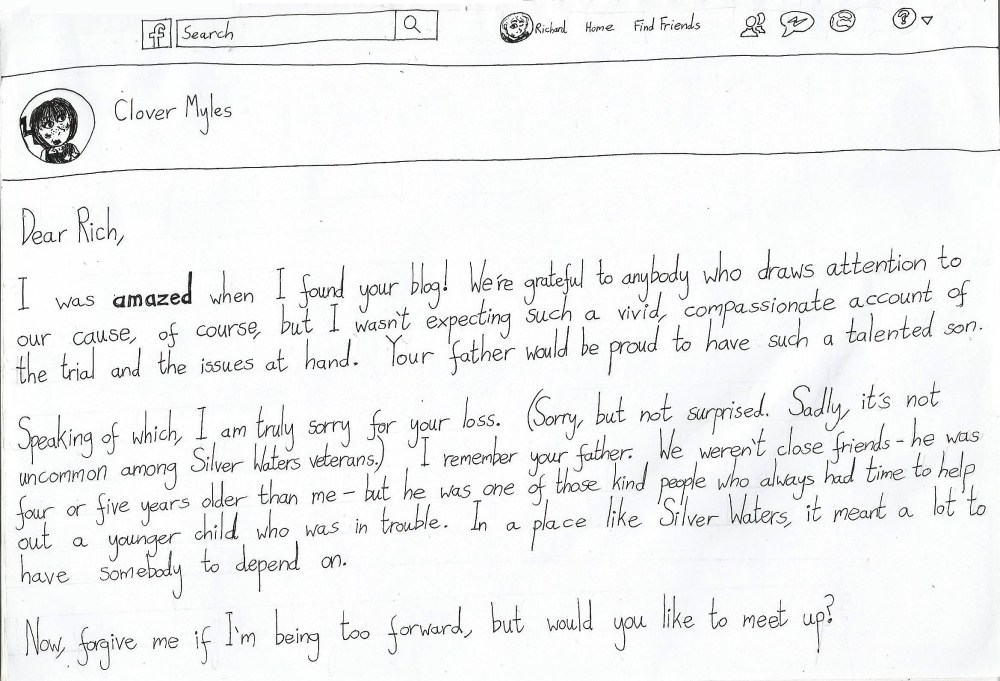 f Search Richard Home Find Friends ?
Clover Myles
Dear Rich,
I was amazed when I found your blog! We're grateful to anybody who draws attention to
our cause, of course, but I wasn't expecting such a vivid, compassionate account of
the trial and the issues at hand. Your father would be proud to have such a talented son.
Speaking of which, I am truly sorry for your loss. (Sorry, but not surprised. Sadly, it's not
uncommon among Silver Waters veterans.) I remember your father. We weren't close friends - he was
four or five years older than me - but he was one of those kind people who always had time to help
out a younger child who was in trouble. In a place like Silver Waters, it meant a lot to
have somebody to depend on.
Now, forgive me if I'm being too forward, but would you like to meet up?